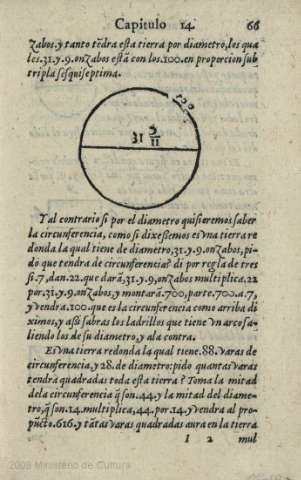 Capitulo 14. 66
Zabos, y tanto tēdra esta tierra por diametro, los qua
les. 31. y. 9. onZabos está con los. 100. en proporcion sub
tripla sesquiseptima.
100
31 9/11
Y al contrario si por el diametro quisieremos saber
la circunferencia, como si dixessemos es vna tierra re
donda la qual tiene de diametro, 31. y. 9. onZabos, pi-
do que tendra de circunferencia? di por regla de tres
si. 7, dan. 22. que dará, 31. y. 9, onZabos multiplica, 22
por. 31. y. 9. onZabos, y montará. 700, parte. 700. a. 7,
y vendra. 100. que es la circunferencia como arriba di
ximos, y assi sabras los ladrillos que tiene vn arco sa-
liendo los de su diametro, y a la contra.
Es vna tierra redonda la qual tiene. 88. varas de
circunferencia, y 28. de diametro: pido quantas varas
tendra quadradas toda esta tierra? Toma la mitad
dela circunferencia q̃ son. 44. y la mitad del diame-
tro, q̃ son. 14. multiplica, 44. por. 14. y vendra al pro-
ducto. 616. y tātas varas quadradas aura en la tierra
I 2 mul
2009 Ministerio de Cultura